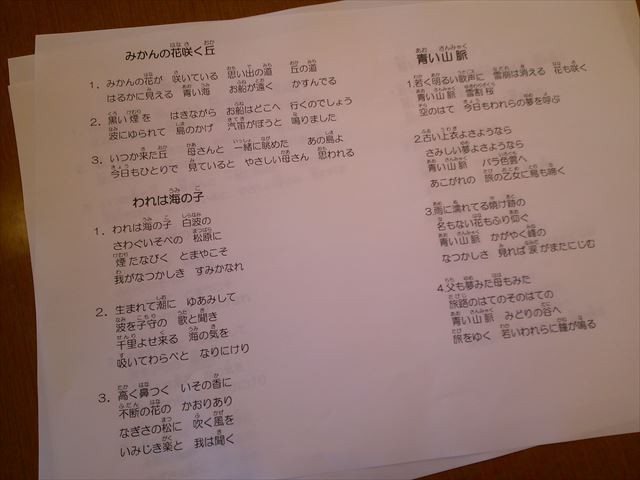 みかんの花咲く丘
1. みかんの花が 咲いている 思い出の道 丘の道
はるかに見える 青い海 お船が遠く かすんでる
2. 黒い煙を はきながら お船はどこへ 行くのでしょう
波にゆられて 島のかげ 汽笛がぼうと 鳴りました
3. いつか来た丘 母さんと 一緒に眺めた あの島よ
今日もひとりで 見ていると やさしい母さん 思われる
われは海の子
1. われは海の子 白波の
さわぐいそべの 松原に
煙たなびく とまやこそ
我がなつかしき すみかなれ
2. 生まれて潮に ゆあみして
波を子守の 歌と聞き
千里よせ来る 海の気を
吸いてわらべと なりにけり
3. 高く鼻つく いその香に
不断の花の かおりあり
なぎさの松に 吹く風を
いみじき楽と 我は聞く
青い山脈
1.若く明るい歌声に 雪崩は消える 花も咲く
青い山脈 雪割桜
空のはて 今日もわれらの夢を呼ぶ
2.古い上衣よさようなら
さみしい夢よさようなら
青い山脈 バラ色雲へ
あこがれの 旅の乙女に鳥も啼く
3.雨に濡れてる焼け跡の
名もない花もふり仰ぐ
青い山脈 かがやく峰の
なつかしさ 見れば涙がまたにじむ
4.父も夢みた母もみた
旅路のはてのそのはての
青い山脈 みどりの谷へ
旅をゆく 若いわれらに鐘が鳴る